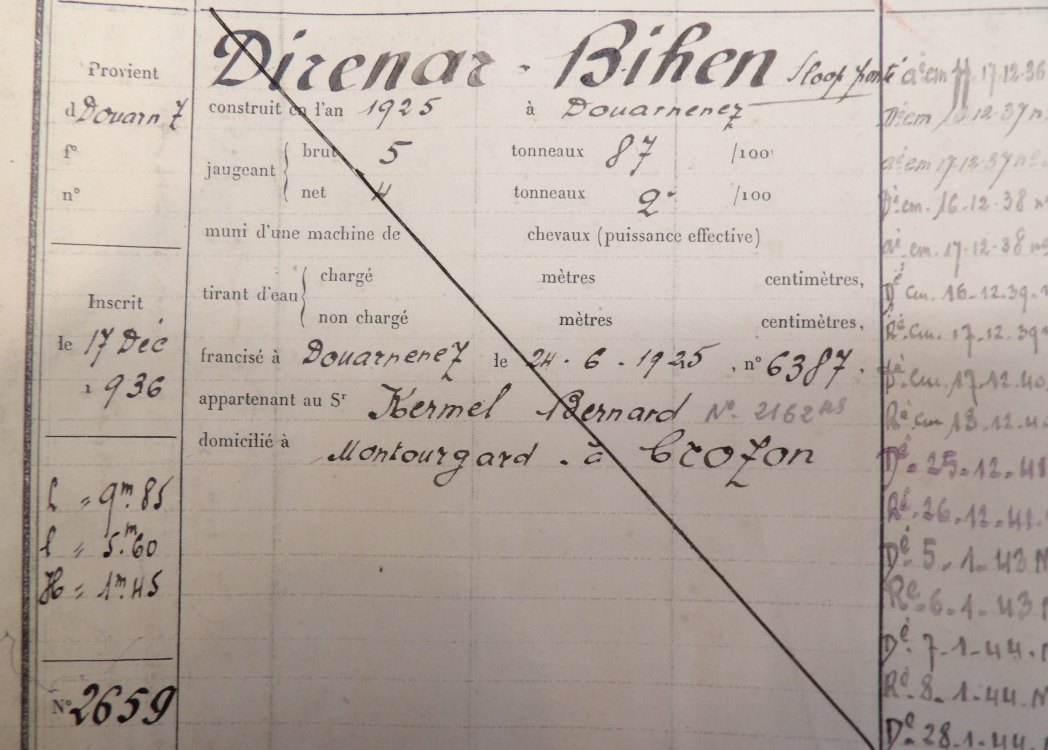 Provient
d Douarn z
f°
n°
Inscrit
le 17 Déc
1936
L = 9m.85
l = 5.m60
H = 1m.45
N° 2659
Direnar - Bihen Sloop ponté
construit en l'an 1925 à Douarnenez
jaugeant { brut 5 tonneaux 87 /100
net 4 tonneaux 2 /100
muni d'une machine de chevaux (puissance effective)
tirant d'eau { chargé mètres centimètres,
non chargé mètres centimètres,
francisé à Douarnenez le 24.6.1925, n° 6387.
appartenant au Sr Kermel Bernard N° 2162
domicilié à Montourgard . à Crozon
17.12.36
12.37 n
em 17.12.37 n°
em. 16.12.38 n°
em. 17.12.38 n°
Dé cm. 16.12.39.
Ré. cm. 17.12.39
cm. 17.12.40
Ré cm 18.12.4
Dé. 25.12.41
Ré. 26.12.41.
Dé. 5.1.43 N
Ré. 6.1.43 N
Dé. 7.1.44. N
Ré. 8.1.44. N
Dé 28.1.44